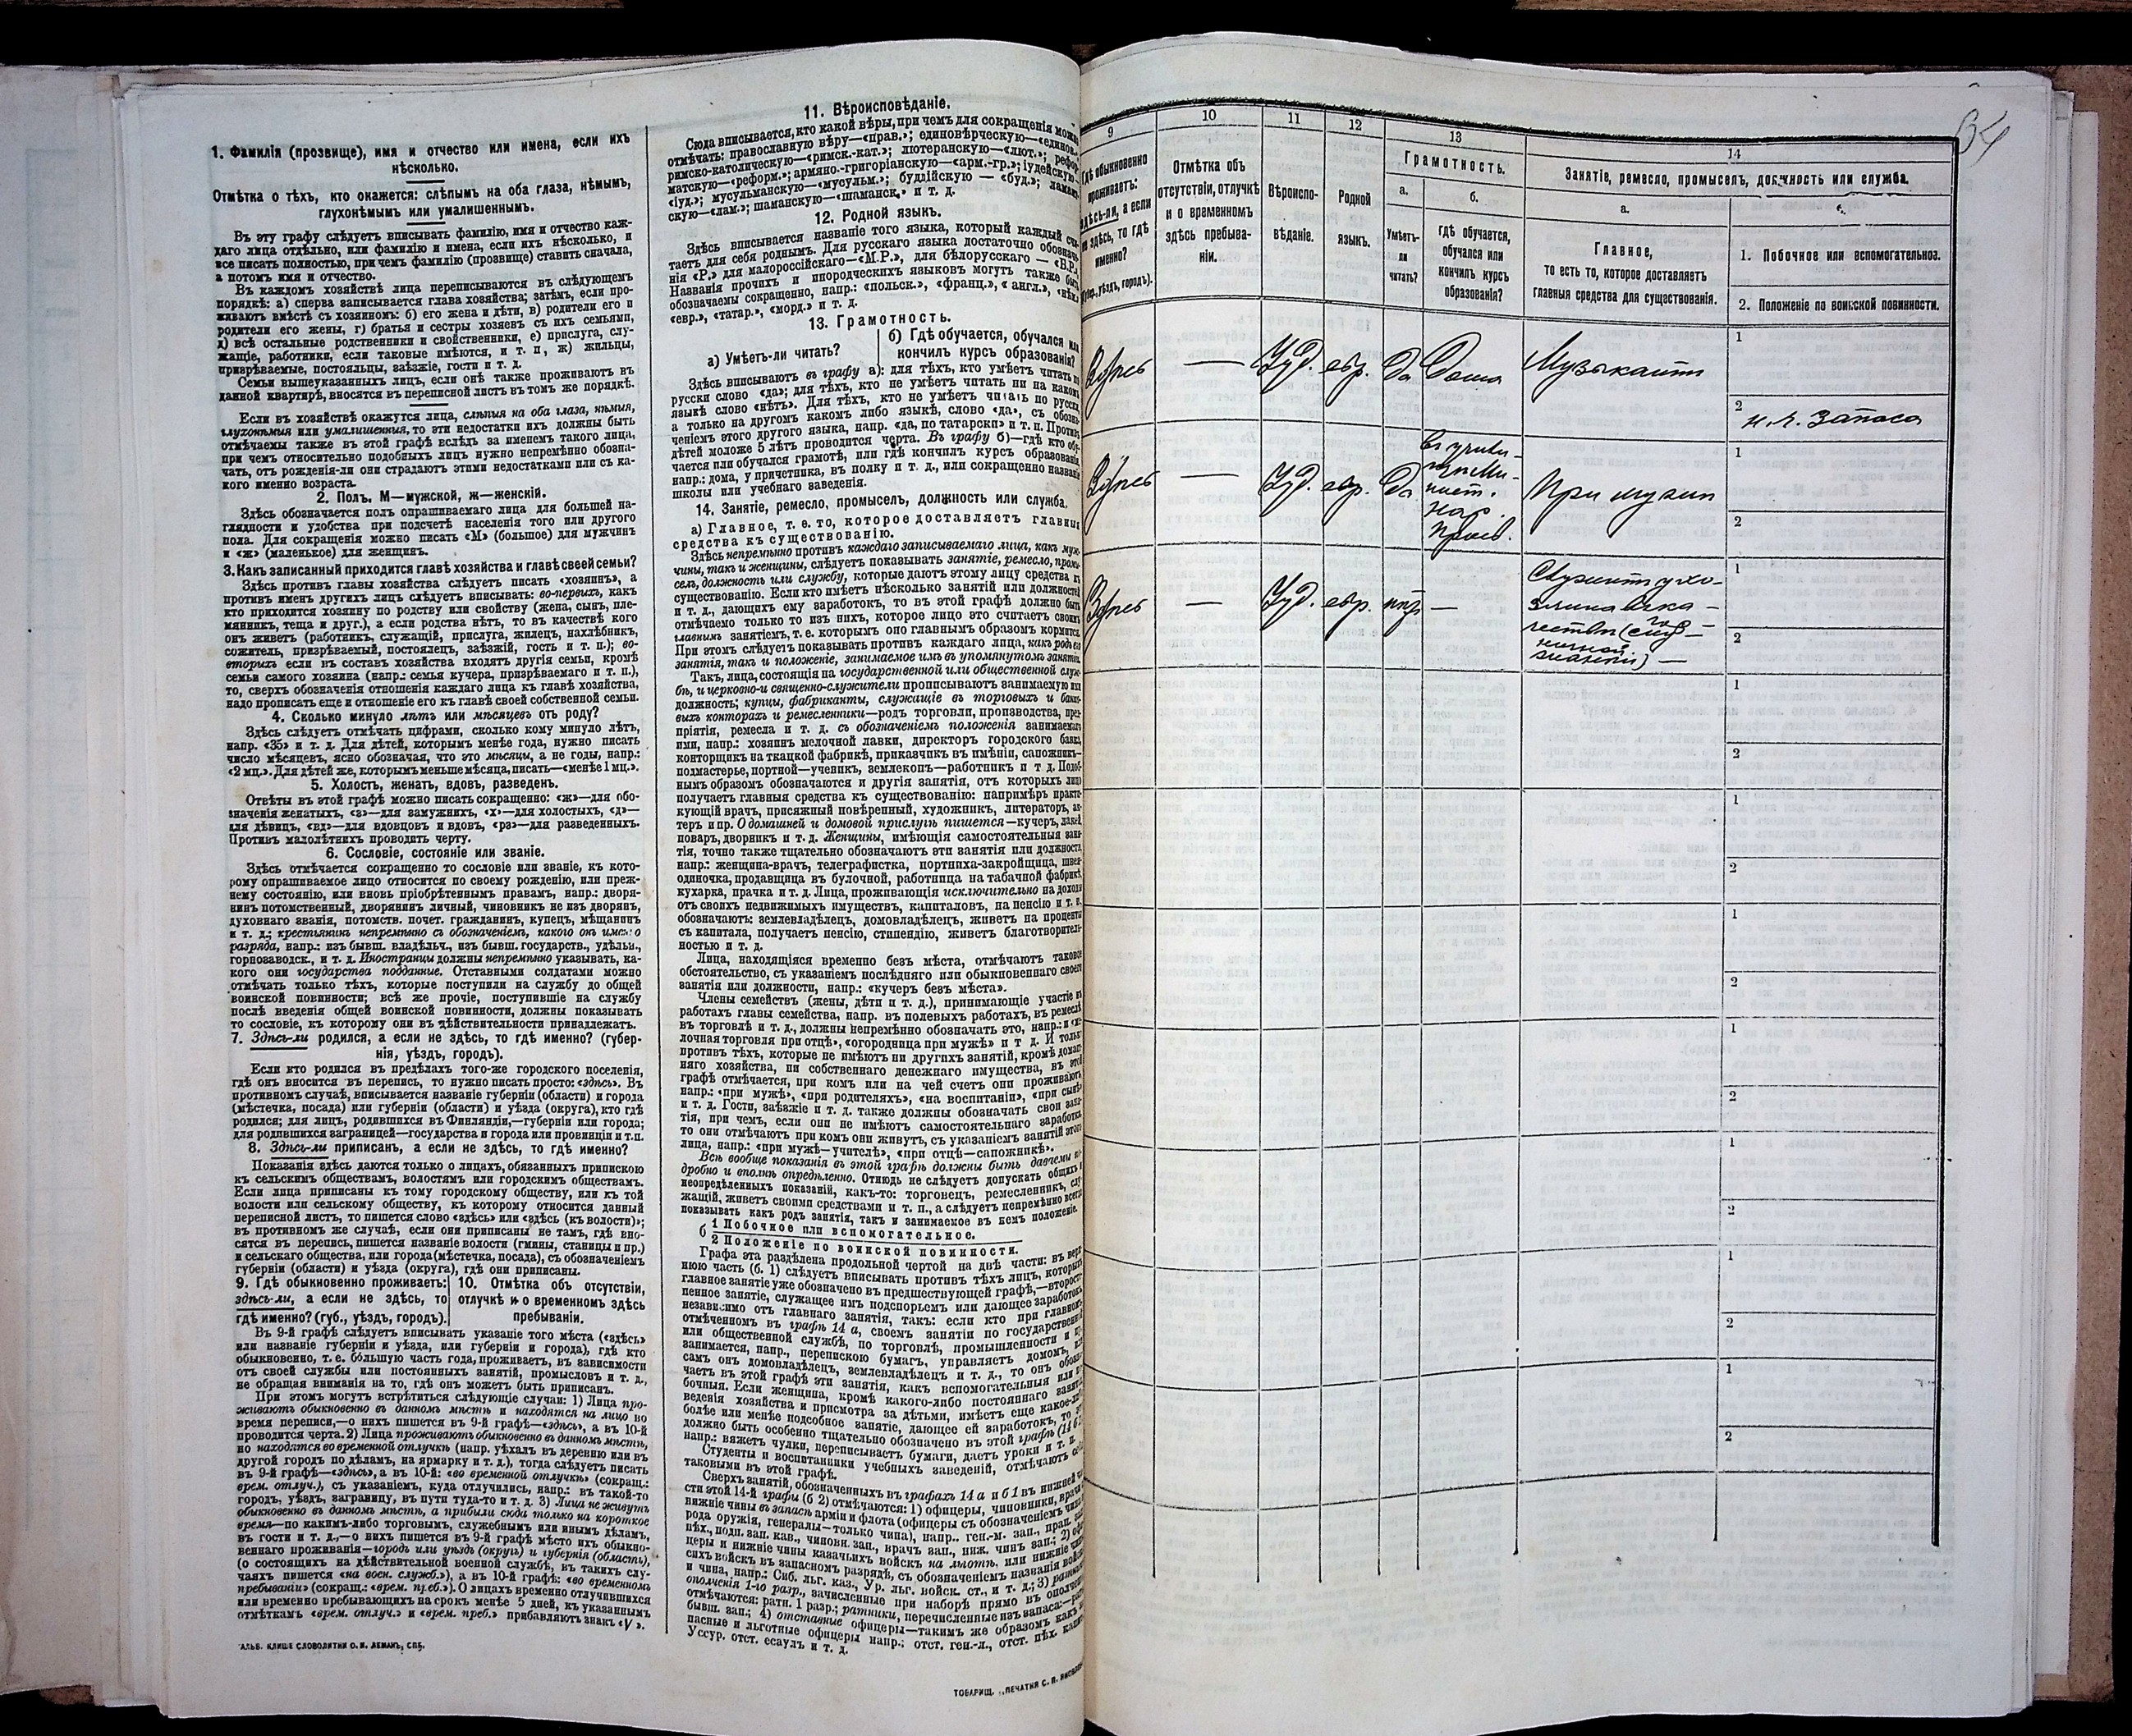 1. Фамилія (прозвище), имя и отчество или имена, если ихъ
нѣсколько.
Отмѣтка о тѣхъ, кто окажется: слѣпымъ на оба глаза, нѣмымъ,
глухонѣмымъ или умалишеннымъ.
Въ эту графу слѣдуетъ вписывать фамилію, имя и отчество каж-
даго лица отдѣльно, или фамилію и имена, если ихъ нѣсколько, и
все писать полностью, при чемъ фамилію (прозвище) ставить сначала,
а потомъ имя и отчество.
Въ каждомъ хозяйствѣ лица переписываются въ слѣдующемъ
порядкѣ: а) сперва записывается глава хозяйства; затѣмъ, если про-
живаютъ вмѣстѣ съ хозяиномъ: б) его жена и дѣти, в) родители его и
родители его жены, г) братья и сестры хозяевъ съ ихъ семьями,
д) всѣ остальные родственники и свойственники, е) прислуга, слу-
жащіе, работники, если таковые имѣются, и т. п, ж) жильцы,
призрѣваемые, постояльцы, заѣзжіе, гости и т. п.
Семьи вышеуказанныхъ лицъ, если онѣ также проживаютъ въ
данной квартирѣ, вносятся въ переписной листъ въ томъ же порядкѣ.
Если въ хозяйствѣ окажутся лица, слѣпыя на оба глаза, нѣмыя,
глухонѣмыя или умалишенныя, то эти недостатки ихъ должны быть
отмѣчаемы также въ этой графѣ вслѣдъ за именемъ такого лица,
при чемъ относительно подобныхъ лицъ нужно непремѣнно обозна-
чать, отъ рожденія-ли они страдаютъ этими недостатками или съ ка-
кого именно возраста.
2. Полъ. М—мужской, ж—женскій.
Здѣсь обозначается полъ опрашиваемаго лица для большей на-
глядности и удобства при подсчетѣ населенія того или другого
пола. Для сокращенія можно писать «М» (большое) для мужчинъ
и «ж» (маленькое) для женщинъ.
3. Какъ записанный приходится главѣ хозяйства и главѣ своей семьи?
Здѣсь противъ главы хозяйства слѣдуетъ писать «хозяинъ», а
противъ именъ другихъ лицъ слѣдуетъ вписывать: во-первыхъ, какъ
кто приходится хозяину по родству или свойству (жена, сынъ, пле-
мянникъ, теща и друг.), а если родства нѣтъ, то въ качествѣ кого
онъ живетъ (работникъ, служащій, прислуга, жилецъ, нахлѣбникъ,
сожитель, призрѣваемый, постоялецъ, заѣзжій, гость и т. п.); во-
вторыхъ если въ составъ хозяйства входятъ другія семьи, кромѣ
семьи самого хозяина (напр.: семья кучера, призрѣваемаго и т. п.),
то, сверхъ обозначенія отношенія каждаго лица къ главѣ хозяйства,
надо прописать еще и отношеніе его къ главѣ своей собственной семьи.
4. Сколько минуло лѣтъ или мѣсяцевъ отъ роду?
Здѣсь слѣдуетъ отмѣчать цифрами, сколько кому минуло лѣтъ,
напр. «35» и т. д. Для дѣтей, которымъ менѣе года, нужно писать
число мѣсяцевъ, ясно обозначая, что это мѣсяцы, а не годы, напр.:
«2 мц.». Для дѣтей же, которымъ меньше мѣсяца, писать—«менѣе 1 мц.».
5. Холостъ, женатъ, вдовъ, разведенъ.
Отвѣты въ этой графѣ можно писать сокращенно: «ж»—для обо-
значенія женатыхъ, «з»—для замужнихъ, «х»—для холостыхъ, «д»—
для дѣвицъ, «вд»—для вдовцовъ и вдовъ, «рз»—для разведенныхъ.
Противъ малолѣтнихъ проводить черту.
6. Сословіе, состояніе или званіе.
Здѣсь отмѣчается сокращенно то сословіе или званіе, къ кото-
рому опрашиваемое лицо относится по своему рожденію, или преж-
нему состоянію, или вновь пріобрѣтеннымъ правамъ, напр.: дворя-
нинъ потомственный, дворянин личный, чиновникъ не изъ дворянъ,
духовнаго званія, потомств. почет. гражданинъ, купецъ, мѣщанинъ
и т. д.; крестьянинъ непремѣнно съ обозначеніемъ, какого онъ именно
разряда, напр.: изъ бывш. владѣльч., изъ бывш. государств., удѣльн.,
горнозаводск., и т. д. Иностранцы должны непремѣнно указывать, ка-
кого они государства подданные. Отставными солдатами можно
отмѣчать только тѣхъ, которые поступили на службу до общей
воинской повинности; всѣ же прочіе, поступившіе на службу
послѣ введенія общей воинской повинности, должны показывать
то сословіе, къ которому они въ дѣйствительности принадлежатъ.
7. Здѣсь-ли родился, а если не здѣсь, то гдѣ именно? (губер-
нія, уѣздъ, городъ).
Если кто родился въ предѣлахъ того-же городского поселенія,
гдѣ онъ вносится въ перепись, то нужно писать просто: «здѣсь». Въ
противномъ случаѣ, вписывается названіе губерніи (области) и города
(мѣстечка, посада) или губерніи (области) и уѣзда (округа), кто гдѣ
родился; для лицъ, родившихся въ Финляндіи,—губерніи или города;
для родившихся заграницей—государства и города или провинціи и т. п.
8. Здѣсь-ли приписанъ, а если не здѣсь, то гдѣ именно?
Показанія здѣсь даются только о лицахъ, обязанныхъ припискою
къ сельскимъ обществамъ, волостямъ или городскимъ обществамъ.
Если лица приписаны къ тому городскому обществу, или къ той
волости или сельскому обществу, къ которому относится данный
переписной листъ, то пишется слово «здѣсь» или «здѣсь (къ волости)»;
въ противномъ же случаѣ, если они приписаны не тамъ, гдѣ вно-
сятся въ перепись, пишется названіе волости (гмины, станицы и пр.)
и сельскаго общества, или города (мѣстечка, посада), съ обозначеніемъ
губерніи (области) и уѣзда (округа), гдѣ они приписаны.
9. Гдѣ обыкновенно проживаетъ:
здѣсь-ли, а если не здѣсь, то
гдѣ именно? (губ., уѣздъ, городъ).
10. Отмѣтка объ отсутствіи,
отлучкѣ и о временномъ здѣсь
пребываніи.
Въ 9-й графѣ слѣдуетъ вписывать указаніе того мѣста («здѣсь»
или названіе губерніи и уѣзда, или губерніи и города), гдѣ кто
обыкновенно, т. е. большую часть года, проживаетъ, въ зависимости
отъ своей службы или постоянныхъ занятій, промысловъ и т. д.,
не обращая вниманія на то, гдѣ онъ можетъ быть приписанъ.
При этомъ могутъ встрѣтиться слѣдующіе случаи: 1) Лица про-
живаютъ обыкновенно въ данномъ мѣстѣ и находятся на лицо во
время переписи,—о нихъ пишется въ 9-й графѣ—«здѣсь», а въ 10-й
проводится черта. 2) Лица проживаютъ обыкновенно въ данномъ мѣстѣ,
но находятся во временной отлучкѣ (напр. уѣхалъ въ деревню или въ
другой городъ по дѣламъ, на ярмарку и т. д.), тогда слѣдуетъ писать
въ 9-й графѣ—«здѣсь», а въ 10-й: «во временной отлучкѣ» (сокращ.:
врем. отлуч.), съ указаніемъ, куда отлучились, напр.: въ такой-то
городъ, уѣздъ, заграницу, въ пути туда-то и т. д. 3) Лица не живутъ
обыкновенно въ данномъ мѣстѣ, а прибыли сюда только на короткое
время—по какимъ-либо торговымъ, служебнымъ или инымъ дѣламъ,
въ гости и т. д.,—о нихъ пишется въ 9-й графѣ мѣсто ихъ обыкно-
веннаго проживанія—городъ или уѣздъ (округъ) и губернія (область),
(о состоящихъ на дѣйствительной военной службѣ, въ такихъ слу-
чаяхъ пишется «на воен. служб.»), а въ 10-й графѣ: «во временномъ
пребываніи» (сокращ.: «врем. преб.»). О лицахъ временно отлучившихся
или временно пребывающихъ на срокъ менѣе 5 дней, къ указаннымъ
отмѣткамъ «врем. отлуч.» и «врем. преб.» прибавляютъ знакъ «V».
11. Вѣроисповѣданіе.
Сюда вписывается, кто какой вѣры, при чемъ для сокращенія можно
отмѣчать: православную вѣру—«прав.»; единовѣрческую—«единов.»
римско-католическую—«римск.-кат.»; лютеранскую—«лют.»; рефор-
матскую—«реформ.»; армяно.-григоріанскую—«арм.-гр.»; іудейскую—
«іуд.»; мусульманскую—«мусульм.»; буддійскую — «буд.»; ламаи-
скую—«лам.»; шаманскую—«шаманск.» и т. д.
12. Родной языкъ.
Здѣсь вписывается названіе того языка, который каждый счи-
таетъ для себя роднымъ. Для русскаго языка достаточно обозначе-
нія «Р.» для малороссійскаго—«М.Р.», для бѣлорусскаго — «Б.Р.»
Названія прочихъ и инородческихъ языковъ могутъ также быть
обозначаемы сокращенно, напр.: «польск.», «франц.», «англ.», «нѣм.»
«евр.», «татар.», «морд.» и т. д.
13. Грамотность.
а) Умѣетъ-ли читать?
б) Гдѣ обучается, обучался или
кончилъ курсъ образованія?
Здѣсь вписываютъ въ графу а): для тѣхъ, кто умѣетъ читать по
русски слово «да»; для тѣхъ, кто не умѣетъ читать ни на какомъ
языкѣ слово «нѣтъ». Для тѣхъ, кто не умѣетъ читать по русски,
а только на другомъ какомъ либо языкѣ, слово «да», съ обозна-
ченіемъ этого другого языка, напр. «да, по татарски» и т. п. Противъ
дѣтей моложе 5 лѣтъ проводится черта. Въ графу б)—гдѣ кто обу-
чается или обучался грамотѣ, или гдѣ кончилъ курсъ образованія,
напр.: дома, у причетника, въ полку и т. д., или сокращенно названіе
школы или учебнаго заведенія.
14. Занятіе, ремесло, промыселъ, должность или служба.
а) Главное, т. е. то, которое доставляетъ главныя
средства къ существованію.
Здѣсь непремѣнно противъ каждаго записываемаго лица, какъ муж-
чины, такъ и женщины, слѣдуетъ показывать занятіе, ремесло, промы-
селъ, должность или службу, которые даютъ этому лицу средства къ
существованію. Если кто имѣетъ нѣсколько занятій или должностей
и т. д., дающихъ ему заработокъ, то въ этой графѣ должно быть
отмѣчаемо только то изъ нихъ, которое лицо это считаетъ своимъ
главнымъ занятіемъ, т. е. которымъ оно главнымъ образомъ кормится.
При этомъ слѣдуетъ показывать противъ каждаго лица, какъ родъ его
занятія, такъ и положеніе, занимаемое имъ въ упомянутомъ занятіи.
Такъ, лица, состоящія на государственной или общественной служ-
бѣ, и церковно-и священно-служители прописываютъ занимаемую ими
должность; купцы, фабриканты, служащіе въ торговыхъ и банко-
выхъ конторахъ и ремесленники—родъ торговли, производства, пред-
пріятія, ремесла и т. д. съ обозначеніемъ положенія занимаемаго
ими, напр.: хозяинъ мелочной лавки, директоръ городского банка,
конторщикъ на ткацкой фабрикѣ, приказчикъ въ имѣніи, сапожникъ—
подмастерье, портной—ученикъ, землекопъ—работникъ и т. д. Подоб-
нымъ образомъ обозначаются и другія занятія, отъ которыхъ лицо
получаетъ главныя средства къ существованію: напримѣръ практи-
кующій врачъ, присяжный повѣренный, художникъ, литераторъ, ак-
теръ и пр. О домашней и домовой прислугѣ пишется—кучеръ, лакей,
поваръ, дворникъ и т. д. Женщины, имѣющія самостоятельныя заня-
тія, точно также тщательно обозначаютъ эти занятія или должности,
напр.: женщина-врачъ, телеграфистка, портниха-закройщица, швея-
одиночка, продавщица въ булочной, работница на табачной фабрикѣ,
кухарка, прачка и т. д. Лица, проживающія исключительно на доходы
отъ своихъ недвижимыхъ имуществъ, капиталовъ, на пенсію и т. п.
обозначаютъ: землевладѣлецъ, домовладѣлецъ, живетъ на проценты
съ капитала, получаетъ пенсію, стипендію, живетъ благотворитель-
ностью и т. д.
Лица, находящіяся временно безъ мѣста, отмѣчаютъ таковое
обстоятельство, съ указаніемъ послѣдняго или обыкновеннаго своего
занятія или должности, напр.: «кучеръ безъ мѣста».
Члены семействъ (жены, дѣти и т. д.), принимающіе участіе въ
работахъ главы семейства, напр. въ полевыхъ работахъ, въ ремеслѣ
въ торговлѣ и т. д., должны непремѣнно обозначать это, напр.: «ме-
лочная торговля при отцѣ», «огородница при мужѣ» и т д. И только
противъ тѣхъ, которые не имѣютъ ни другихъ занятій, кромѣ домаш-
няго хозяйства, ни собственнаго денежнаго имущества, въ этой
графѣ отмѣчается, при комъ или на чей счетъ они проживаютъ
напр.: «при мужѣ», «при родителяхъ», «на воспитаніи», «при сынѣ»
и т. д. Гости, заѣзжіе и т. д. также должны обозначать свои заня-
тія, при чемъ, если они не имѣютъ самостоятельнаго заработка,
то они отмѣчаютъ при комъ они живутъ, съ указаніемъ занятій этого
лица, напр.: «при мужѣ—учителѣ», «при отцѣ—сапожникѣ».
Всѣ вообще показанія въ этой графѣ должны быть даваемы по-
дробно и вполнѣ опредѣленно. Отнюдь не слѣдуетъ допускать общихъ и
неопредѣленныхъ показаній, какъ-то: торговецъ, ремесленникъ, слу-
жащій, живетъ своими средствами и т. п., а слѣдуетъ непремѣнно всегда
показывать какъ родъ занятія, такъ и занимаемое въ немъ положеніе.
б 1 Побочное или вспомогательное.
2 Положеніе по воинской повинности.
Графа эта раздѣлена продольной чертой на двѣ части: въ верх-
нюю часть (б. 1) слѣдуетъ вписывать противъ тѣхъ лицъ, которыхъ
главное занятіе уже обозначено въ предшествующей графѣ,—второсте-
пенное занятіе, служащее имъ подспорьемъ или дающее заработокъ
независимо отъ главнаго занятія, такъ: если кто при главномъ,
отмѣченномъ въ графѣ 14 а, своемъ занятіи по государственной
или общественной службѣ, по торговлѣ, промышленности и пр.
занимается, напр., перепискою бумагъ, управляетъ домомъ, или
самъ онъ домовладѣлецъ, землевладѣлецъ и т. д., то онъ обозна-
чаетъ въ этой графѣ эти занятія, какъ вспомогательныя или по-
бочныя. Если женщина, кромѣ какого-либо постояннаго занятія,
веденія хозяйства и присмотра за дѣтьми, имѣетъ еще какое-либо
болѣе или менѣе подсобное занятіе, дающее ей заработокъ, то это
должно быть особенно тщательно обозначено въ этой графѣ (14 б 1)
напр.: вяжетъ чулки, переписываетъ бумаги, даетъ уроки и т. п.
Студенты и воспитанники учебныхъ заведеній, отмѣчаютъ себя
таковыми въ этой графѣ.
Сверхъ занятій, обозначенныхъ въ графахъ 14 а и б 1 въ нижней ча-
сти этой 14-й графы (б 2) отмѣчаются: 1) офицеры, чиновники, врачи и
нижніе чины въ запасѣ арміи и флота (офицеры съ обозначеніемъ чина и
рода оружія, генералы—только чина), напр.. ген.-м. зап., прап. зап.
пѣх., подп. зап. кав., чиновн. зап., врачъ зап., ниж. чинъ зап.; 2) офи-
церы и нижніе чины казачьихъ войскъ на льготѣ, или нижніе чины
сихъ войскъ въ запасномъ разрядѣ, съ обозначеніемъ названія войска
и чина, напр.: Сиб. льг. каз., Ур. льг. войск. ст., и т. д.; 3) ратники
ополченія 1-го разр., зачисленные при наборѣ прямо въ ополченіе
отмѣчаются: ратн. 1 разр.; ратники, перечисленные изъ запаса:—ратн.
бывш. зап.; 4) отставные офицеры—такимъ же образомъ какъ и за-
пасные и льготные офицеры напр.: отст. ген.-л., отст. пѣх. капит.
Уссур. отст. есаулъ и т. д.
КЛИШЕ СЛОВОЛИТНИ О. И. ЛЕМАНЪ, СПБ.
ТОВАРИЩ. „ПЕЧАТНЯ С. П. ЯКОВЛЕВА
9
10
11
12
13
14
Гдѣ обыкновенно
проживаетъ:
здѣсь-ли, а если
не здѣсь, то гдѣ
именно?
(губер., уѣздъ, городъ).
Отмѣтка объ
отсутствіи, отлучкѣ
и о временномъ
здѣсь пребыва-
ніи.
Вѣроиспо-
вѣданіе.
Родной
языкъ.
Грамотность.
а.
Умѣетъ-
ли
читать?
б.
гдѣ обучается,
обучался или
кончилъ курсъ
образованія?
Занятіе, ремесло, промыселъ, должность или служба.
а.
Главное,
то есть то, которое доставляетъ
главныя средства для существованія.
1. Побочное или вспомогательное.
2. Положеніе по воинской повинности.
Здѣсь — Іуд. евр. Да Дома Музыкантъ
1
2 н. ч. запаса
Здѣсь — Іуд. евр. Да
въ учили-
Ми-
нист.
нар.
Просв.
При мужѣ
1
2
Здѣсь — Іуд. евр. нѣт —
Служитъ у хо-
зяина
1
2
1
2
1
2
1
2
1
2
1
2
1
2
1
2